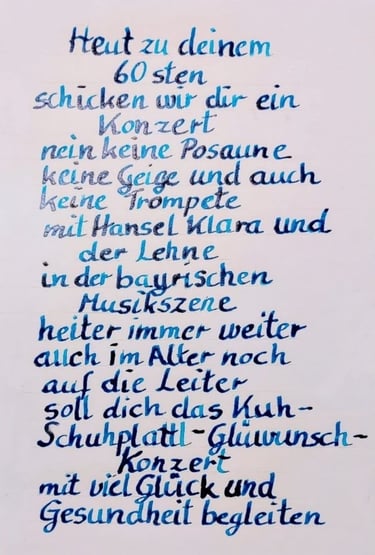 Heut zu deinem
60 sten
schicken wir dir ein
Konzert
nein keine Posaune
keine Geige und auch
keine Trompete
mit Hansel Klara und
der Lehne
in der bayrischen
Musikszene
heiter immer weiter
auch im Alter noch
auf die Leiter
soll dich das Kuh-
Schuhplattl-Glüwunsch-
Konzert
mit viel Glück und
Gesundheit begleiten